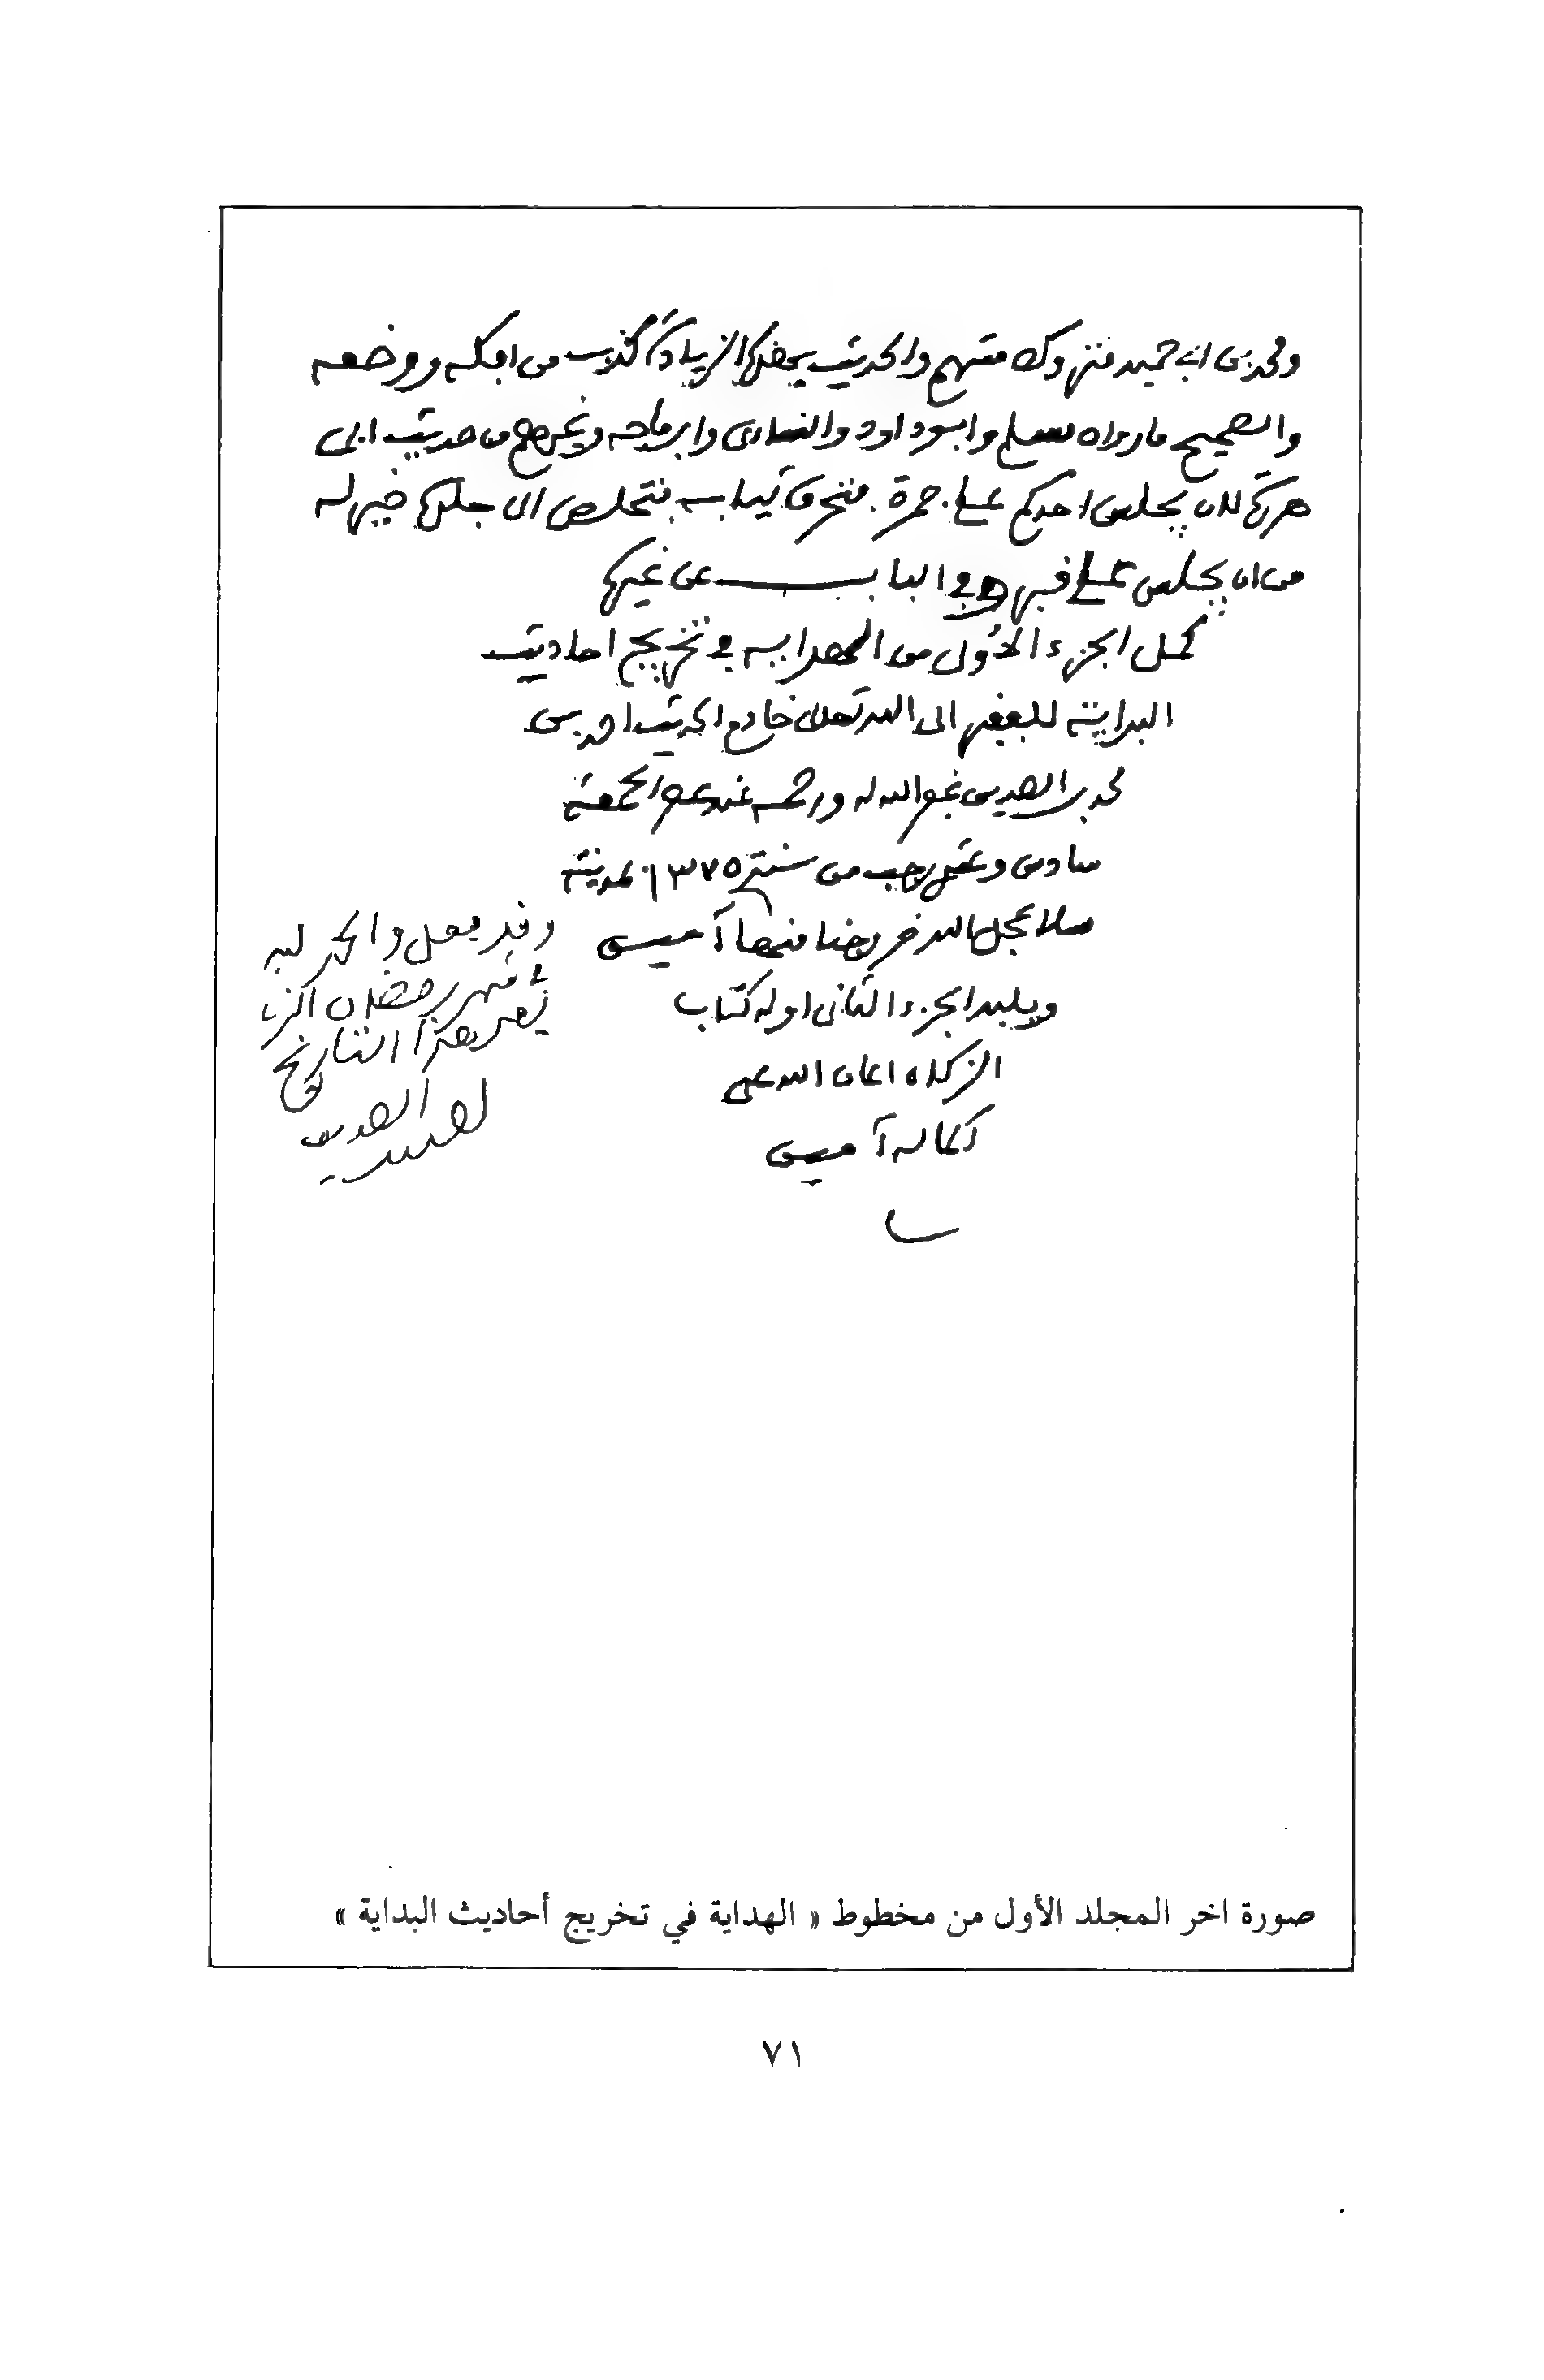 ومحمد بن أبي حميد متروك متهم والحديث بهذه الزيادة كذب من افكه ووضعه
والصحيح ما رواه مسلم وابو داود والنسائى وابن ماجه وغيرهم من حديث ابى
هريرة لان يجلس احدكم على جمرة فتحرق ثيابه فتخلص الى جلده خير له
من ان يجلس على قبر وفي الباب عن غيره
كمل الجزء الأول من الهداية في تخريج احاديث
البداية للفقير الى الله تعالى خادم الحديث احمد بن
محمد بن الصديق غفر الله له ورحمه عند عصر الجمعة
سادس وعشرى رجب من سنة ١٣٧٥ بمدينة
سلا عجل الله خروجنا منها آمين
ويليه الجزء الثانى اوله كتاب
الزكاة اعان الله على
اكماله آمين
وقد فعل والحمد لله
في شهر رمضان الذى
بعد هذا التاريخ
صورة اخر المجلد الأول من مخطوط « الهداية في تخريج أحاديث البداية »
٧١